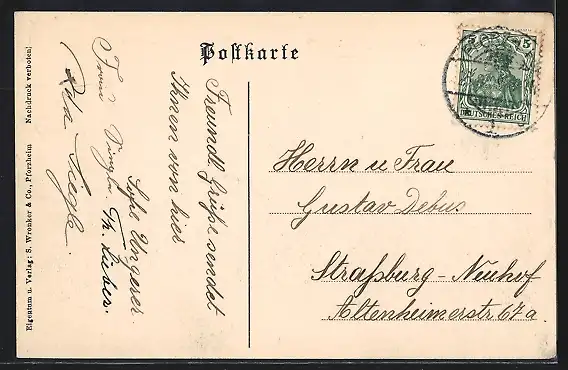 Postkarte
5
DEUTSCHES REICH
Freundl. Grüße sendet
Ihnen von hier
Sofie Ungerer.
Frau Th. Lieber.
Herrn u Frau
Gustav Debus
Straßburg-Neuhof
Altenheimerstr 67a.
Eigentum u. Verlag: S. Wronker & Co., Pforzheim Nachdruck verboten!